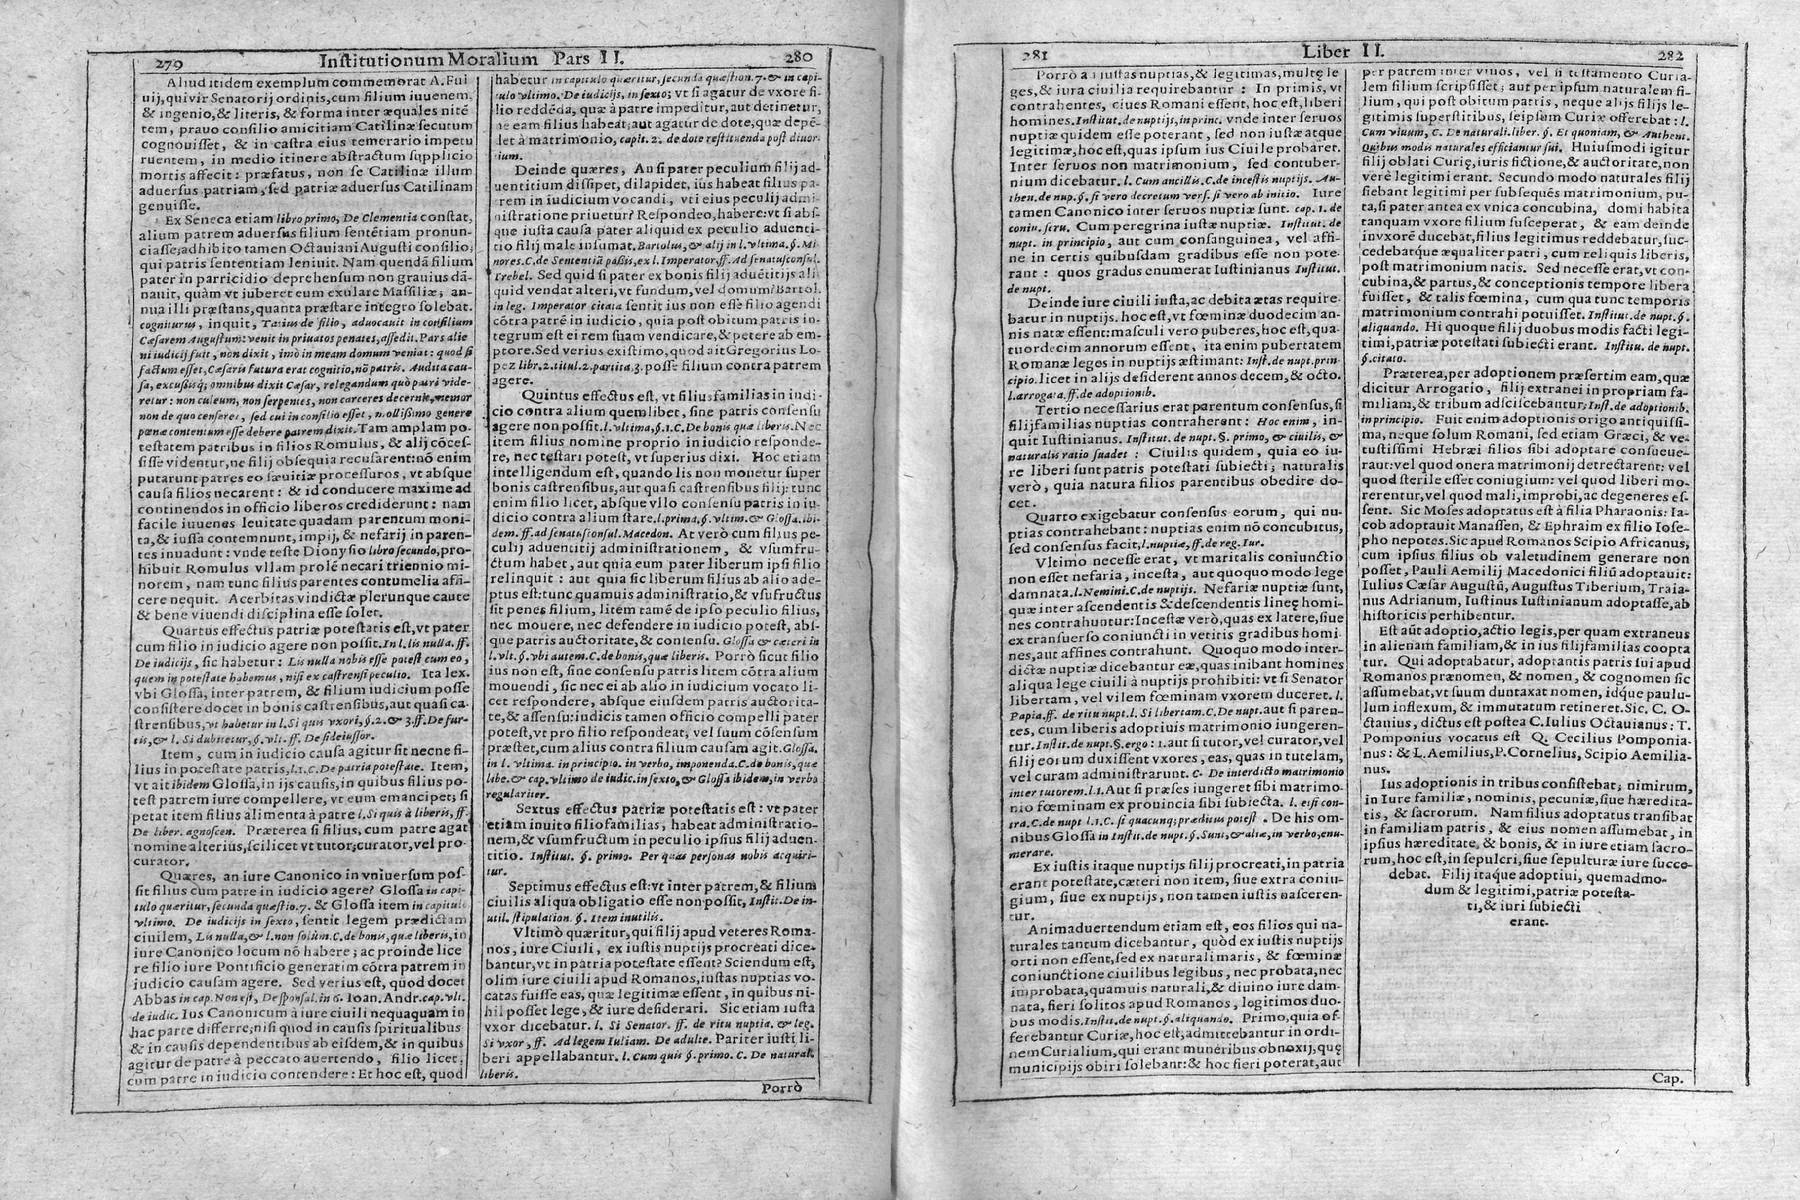 279 Institutionum Moralium Pars II. 280
Aliud itidem exemplum commemorat A. Ful
uij, qui vir Senatorij ordinis, cum filium iuuenem,
& ingenio, & literis, & forma inter æquales nité
tem, prauo consilio amicitiam Catilinæ secutum
cognouisset, & in castra eius temerario impetu
ruentem, in medio itinere abstractum supplicio
mortis affecit: præfatus, non se Catilinæ illum
aduersus patriam, sed patriæ aduersus Catilinam
genuisse.
Ex Seneca etiam libro primo, De Clementia constat,
alium patrem aduersus filium sentétiam pronun-
ciasse, adhibito tamen Octauiani Augusti consilio,
qui patris sententiam leniuit. Nam quendã filium
pater in parricidio deprehensum non grauius dã-
nauit, quàm vt iuberet eum exulare Massiliæ; an-
nua illi præstans, quanta præstare integro solebat.
cogniturus, inquit, Tatius de filio, aduocauit in consilium
Cæsarem Augustum: venit in priuatos penates, assedit. Pars alie
ni iudicij fuit, non dixit, imò in meam domum veniat: quod si
factum esset, Cæsaris futura erat cognitio, nõ patris. Audita cau-
sa, excussisq; omnibus dixit Cæsar, relegandum quò patri vide-
retur: non culeum, non serpentes, non carceres decernit, memor
non de quo censeret, sed cui in consilio esset, mollissimo genere
pœnæ contentum esse debere patrem dixit. Tam amplam po-
testatem patribus in filios Romulus, & alij cõces-
sisse videntur, ne filij obsequia recusarent: nõ enim
putarunt patres eo sæuitiæ processuros, vt absque
causa filios necarent: & id conducere maxime ad
continendos in officio liberos crediderunt: nam
facile iuuenes leuitate quadam parentum moni-
ta, & iussa contemnunt, impij, & nefarij in paren-
tes inuadunt: vnde teste Dionysio libro secundo, pro-
hibuit Romulus vllam prolé necari triennio mi-
norem, nam tunc filius parentes contumelia affi-
cere nequit. Acerbitas vindictæ plerunque caute
& bene viuendi disciplina esse solet.
Quartus effectus patriæ potestatis est, vt pater
cum filio in iudicio agere non possit. In l. lis nulla. ff.
De iudicijs, sic habetur: Lis nulla nobis esse potest cum eo,
quem in potestate habemus, nisi ex castrensi peculio. Ita lex.
vbi Glossa, inter patrem, & filium iudicium posse
consistere docet in bonis castrensibus, aut quasi ca-
strensibus, vt habetur in l. Si quis vxori, §. 2. & 3. ff. De fur-
tis, & l. Si dubitetur, §. vlt. ff. De fideiussor.
Item, cum in iudicio causa agitur sit necne fi-
lius in potestate patris, l. 1. C. De patria potestate. Item,
vt ait ibidem Glossa, in ijs causis, in quibus filius po-
test patrem iure compellere, vt eum emancipet; si
petat item filius alimenta à patre l. Si quis à liberis, ff.
De liber. agnoscen. Præterea si filius, cum patre agat
nomine alterius, scilicet vt tutor, curator, vel pro-
curator.
Quæres, an iure Canonico in vniuersum pos-
sit filius cum patre in iudicio agere? Glossa in capi-
tulo quæritur, secunda quæstio. 7. & Glossa item in capitulo
vltimo. De iudicijs in sexto, sentit legem prædictam
ciuilem, Lis nulla, & l. non solùm. C. de bonis, quæ liberis, in
iure Canonico locum nõ habere; ac proinde lice
re filio iure Pontificio generatim cõtra patrem in
iudicio causam agere. Sed verius est, quod docet
Abbas in cap. Non est, De sponsal. in 6. Ioan. Andr. cap. vlt.
de iudic. Ius Canonicum à iure ciuili nequaquam in
hac parte differre; nisi quod in causis spiritualibus
& in causis dependentibus ab eisdem, & in quibus
agitur de patre à peccato auertendo, filio licet,
cum patre in iudicio contendere: Et hoc est, quod
habetur in capitulo quæritur, secunda quæstion. 7. & in capi-
tulo vltimo. De iudicijs, in sexto; vt si agatur de vxore fi-
lio reddéda, quæ à patre impeditur, aut detinetur,
ne eam filius habeat; aut agatur de dote, quæ depé-
det à matrimonio, capit. 2. de dote restituenda post diuor-
tium.
Deinde quæres, An si pater peculium filij ad-
uentitium dissipet, dilapidet, ius habeat filius pa-
rem in iudicium vocandi, vti eius peculij admi-
nistratione priuetur? Respondeo, habere: vt si abs-
que iusta causa pater aliquid ex peculio aduenti-
tio filij male insumat, Bartolus, & alij in l. vltima. §. Mi-
nores. C. de Sententiã passis, ex l. Imperator, ff. Ad senatuscõsul.
Trebel. Sed quid si pater ex bonis filij aduétitijs ali
quid vendat alteri, vt fundum, vel domum? Bartol.
in leg. Imperator citata sentit ius non esse filio agendi
cõtra patré in iudicio, quia post obitum patris in-
tegrum est ei rem suam vendicare, & petere ab em-
ptore. Sed verius existimo, quod ait Gregorius Lo-
pez libr. 2. titul. 2. partita 3. posse filium contra patrem
agere.
Quintus effectus est, vt filiusfamilias in iudi-
cio contra alium quemlibet, sine patris consensu
agere non possit. l. vltima, §. 1. C. De bonis quæ liberis. Nec
item filius nomine proprio in iudicio responde-
re, nec testari potest, vt superius dixi. Hoc etiam
intelligendum est, quando lis non monetur super
bonis castrensibus, aut quasi castrensibus filij: tunc
enim filio licet, absque vllo consensu patris in iu-
dicio contra alium stare. l. prima, §. vltim. & Glossa. ibi-
dem. ff. ad senatusconsul. Macedon. At verò cum filius pe-
culij aduentitij administrationem, & vsumfru-
ctum habet, aut quia eum pater liberum ipsi filio
relinquit: aut quia sic liberum filius ab alio ade-
ptus est: tunc quamuis administratio, & vsufructus
sit penes filium, litem tamé de ipso peculio filius,
nec mouere, nec defendere in iudicio potest, abs-
que patris auctoritate, & consensu. Glossa & cæteri in
l. vlt. §. vbi autem. C. de bonis, quæ liberis. Porrò sicut filio
ius non est, sine consensu patris litem cõtra alium
mouendi, sic nec ei ab alio in iudicium vocato li-
cet respondere, absque eiusdem patris auctorita-
te, & assensu: iudicis tamen officio compelli pater
potest, vt pro filio respondeat, vel suum cõsensum
præstet, cum alius contra filium causam agit. Glossa.
in l. vltima. in principio. in verbo, imponenda. C. de bonis, quæ
libe. & cap. vltimo de iudic. in sexto, & Glossa ibidem, in verbo
regulariter.
Sextus effectus patriæ potestatis est: vt pater
etiam inuito filiofamilias, habeat administratio-
nem, & vsumfructum in peculio ipsius filij aduen-
titio. Institut. §. primo. Per quas personas nobis acquiri-
tur.
Septimus effectus est: vt inter patrem, & filium
ciuilis aliqua obligatio esse non possit, Instit. De in-
util. stipulation. §. Item inutilis.
Vltimò quæritur, qui filij apud veteres Roma-
nos, iure Ciuili, ex iustis nuptijs procreati dice-
bantur, vt in patria potestate essent? Sciendum est,
olim iure ciuili apud Romanos, iustas nuptias vo-
catas fuisse eas, quæ legitimæ essent, in quibus ni-
hil posset lege, & iure desiderari. Sic etiam iusta
vxor dicebatur. l. Si Senator. ff. de ritu nuptia. & leg.
Si vxor, ff. Ad legem Iuliam. De adulte. Pariter iusti li-
beri appellabantur. l. Cum quis §. primo. C. De natural.
liberis.
Porrò
281 Liber II. 282
Porrò ad iustas nuptias, & legitimas, multę le
ges, & iura ciuilia requirebantur: In primis, vt
contrahentes, ciues Romani essent, hoc est, liberi
homines. Institut. de nuptijs, in princ. vnde inter seruos
nuptiæ quidem esse poterant, sed non iustæ atque
legitimæ, hoc est, quas ipsum ius Ciuile probaret.
Inter seruos non matrimonium, sed contuber-
nium dicebatur. l. Cum ancillis. C. de incestis nuptijs. Au-
then. de nup. §. si vero decretum vers. si vero ab initio. Iure
tamen Canonico inter seruos nuptiæ sunt. cap. 1. de
coniu. seru. Cum peregrina iustæ nuptiæ. Institut. de
nupt. in principio, aut cum consanguinea, vel affi-
ne in certis quibusdam gradibus esse non pote-
rant: quos gradus enumerat Iustinianus Institut.
de nupt.
Deinde iure ciuili iusta, ac debita ætas require-
batur in nuptijs. hoc est, vt fœminæ duodecim an-
nis natæ essent: masculi vero puberes, hoc est, qua-
tuordecim annorum essent, ita enim pubertatem
Romanæ leges in nuptijs æstimant: Inst. de nupt. prin-
cipio. licet in alijs desiderent annos decem, & octo.
l. arrogata. ff. de adoptionib.
Tertio necessarius erat parentum consensus, si
filijfamilias nuptias contraherent: Hoc enim, in-
quit Iustinianus. Institut. de nupt. §. primo, & ciuilis, &
naturalis ratio suadet: Ciuilis quidem, quia eo iu-
re liberi sunt patris potestati subiecti; naturalis
verò, quia natura filios parentibus obedire do-
cet.
Quarto exigebatur consensus eorum, qui nu-
ptias contrahebant: nuptias enim nõ concubitus,
sed consensus facit, l. nuptiæ, ff. de reg. Iur.
Vltimo necesse erat, vt maritalis coniunctio
non esset nefaria, incesta, aut quoquo modo lege
damnata. l. Nemini. C. de nuptijs. Nefariæ nuptiæ sunt,
quæ inter ascendentis & descendentis lineę homi-
nes contrahuntur: Incestæ verò, quas ex latere, siue
ex transuerso coniuncti in vetitis gradibus homi-
nes, aut affines contrahunt. Quoquo modo inter-
dictæ nuptiæ dicebantur eæ, quas inibant homines
aliqua lege ciuili à nuptijs prohibiti: vt si Senator
libertam, vel vilem fœminam vxorem duceret. l.
Papia, ff. de ritu nupt. l. Si libertam. C. De nupt. aut si paren-
tes, cum liberis adoptiuis matrimonio iungeren-
tur. Instit. de nupt. §. ergo: 1. aut si tutor, vel curator, vel
filij eorum duxissent vxores, eas, quas in tutelam,
vel curam administrarunt. C. De interdicto matrimonio
inter tutorem. l. 1. Aut si præses iungeret sibi matrimo-
nio fœminam ex prouincia sibi subiecta. l. etsi con-
tra. C. de nupt l. 1. C. si quacunq; præditus potest. De his om-
nibus Glossa in Institut. de nupt. §. Sunt, & aliæ, in verbo, enu-
merare.
Ex iustis itaque nuptijs filij procreati, in patria
erant potestate, cæteri non item, siue extra coniu-
gium, siue ex nuptijs, non tamen iustis nasceren-
tur.
Animaduertendum etiam est, eos filios qui na-
turales tantum dicebantur, quòd ex iustis nuptijs
orti non essent, sed ex naturali maris, & fœminæ
coniunctione ciuilibus legibus, nec probata, nec
improbata, quamuis naturali, & diuino iure dam-
nata, fieri solitos apud Romanos, legitimos duo-
bus modis. Instit. de nupt. §. aliquando. Primo, quia of-
ferebantur Curiæ, hoc est, admittebantur in ordi-
nem Curialium, qui erant muneribus obnoxij, quę
municipijs obiri solebant: & hoc fieri poterat, aut
per patrem inter viuos, vel si testamento Curia-
lem filium scripsisset; aut per ipsum naturalem fi-
lium, qui post obitum patris, neque alijs filijs le-
gitimis superstitibus, seipsum Curiæ offerebat: l.
Cum viuum, C. De naturali. liber. §. Et quoniam, & Authent.
Quibus modis naturales efficiantur sui. Huiusmodi igitur
filij oblati Curię, iuris fictione, & auctoritate, non
verè legitimi erant. Secundo modo naturales filij
fiebant legitimi per subsequēs matrimonium, pu-
ta, si pater antea ex vnica concubina, domi habita
tanquam vxore filium susceperat, & eam deinde
in vxorē ducebat, filius legitimus reddebatur, suc-
cedebatque æqualiter patri, cum reliquis liberis,
post matrimonium natis. Sed necesse erat, vt con-
cubina, & partus, & conceptionis tempore libera
fuisset, & talis fœmina, cum qua tunc temporis
matrimonium contrahi potuisset. Institut. de nupt. §.
aliquando. Hi quoque filij duobus modis facti legi-
timi, patriæ potestati subiecti erant. Institu. de nupt.
§. citato.
Præterea, per adoptionem præsertim eam, quæ
dicitur Arrogatio, filij extranei in propriam fa-
miliam, & tribum adsciscebantur, Inst. de adoptionib.
in principio. Fuit enim adoptionis origo antiquissi-
ma, neque solum Romani, sed etiam Græci, & ve-
tustissimi Hebræi filios sibi adoptare consueue-
raut: vel quod onera matrimonij detrectarent: vel
quod sterile esset coniugium: vel quod liberi mo-
rerentur, vel quod mali, improbi, ac degeneres es-
sent. Sic Moses adoptatus est à filia Pharaonis: Ia-
cob adoptauit Manassen, & Ephraim ex filio Iose-
pho nepotes. Sic apud Romanos Scipio Africanus,
cum ipsius filius ob valetudinem generare non
posset, Pauli Aemilij Macedonici filiũ adoptauit:
Iulius Cæsar Augustũ, Augustus Tiberium, Traia-
nus Adrianum, Iustinus Iustinianum adoptasse, ab
historicis perhibentur.
Est aũt adoptio, actio legis, per quam extraneus
in alienam familiam, & in ius filijfamilias coopta
tur. Qui adoptabatur, adoptantis patris sui apud
Romanos prænomen, & nomen, & cognomen sic
assumebat, vt suum duntaxat nomen, idq́ue paulu-
lum inflexum, & immutatum retineret. Sic. C. O-
ctanius, dictus est postea C. Iulius Octauianus: T.
Pomponius vocatus est Q. Cecilius Pomponia-
nus: & L. Aemilius, P. Cornelius, Scipio Aemilia-
nus.
Ius adoptionis in tribus consistebat; nimirum,
in Iure familiæ, nominis, pecuniæ, siue hæredita-
tis, & sacrorum. Nam filius adoptatus transibat
in familiam patris, & eius nomen assumebat, in
ipsius hæreditate, & bonis, & in iure etiam sacro-
rum, hoc est, in sepulcri, siue sepulturæ iure succe-
debat. Filij itaque adoptiui, quemadmo-
dum & legitimi, patriæ potesta-
ti, & iuri subiecti
erant.
Cap.